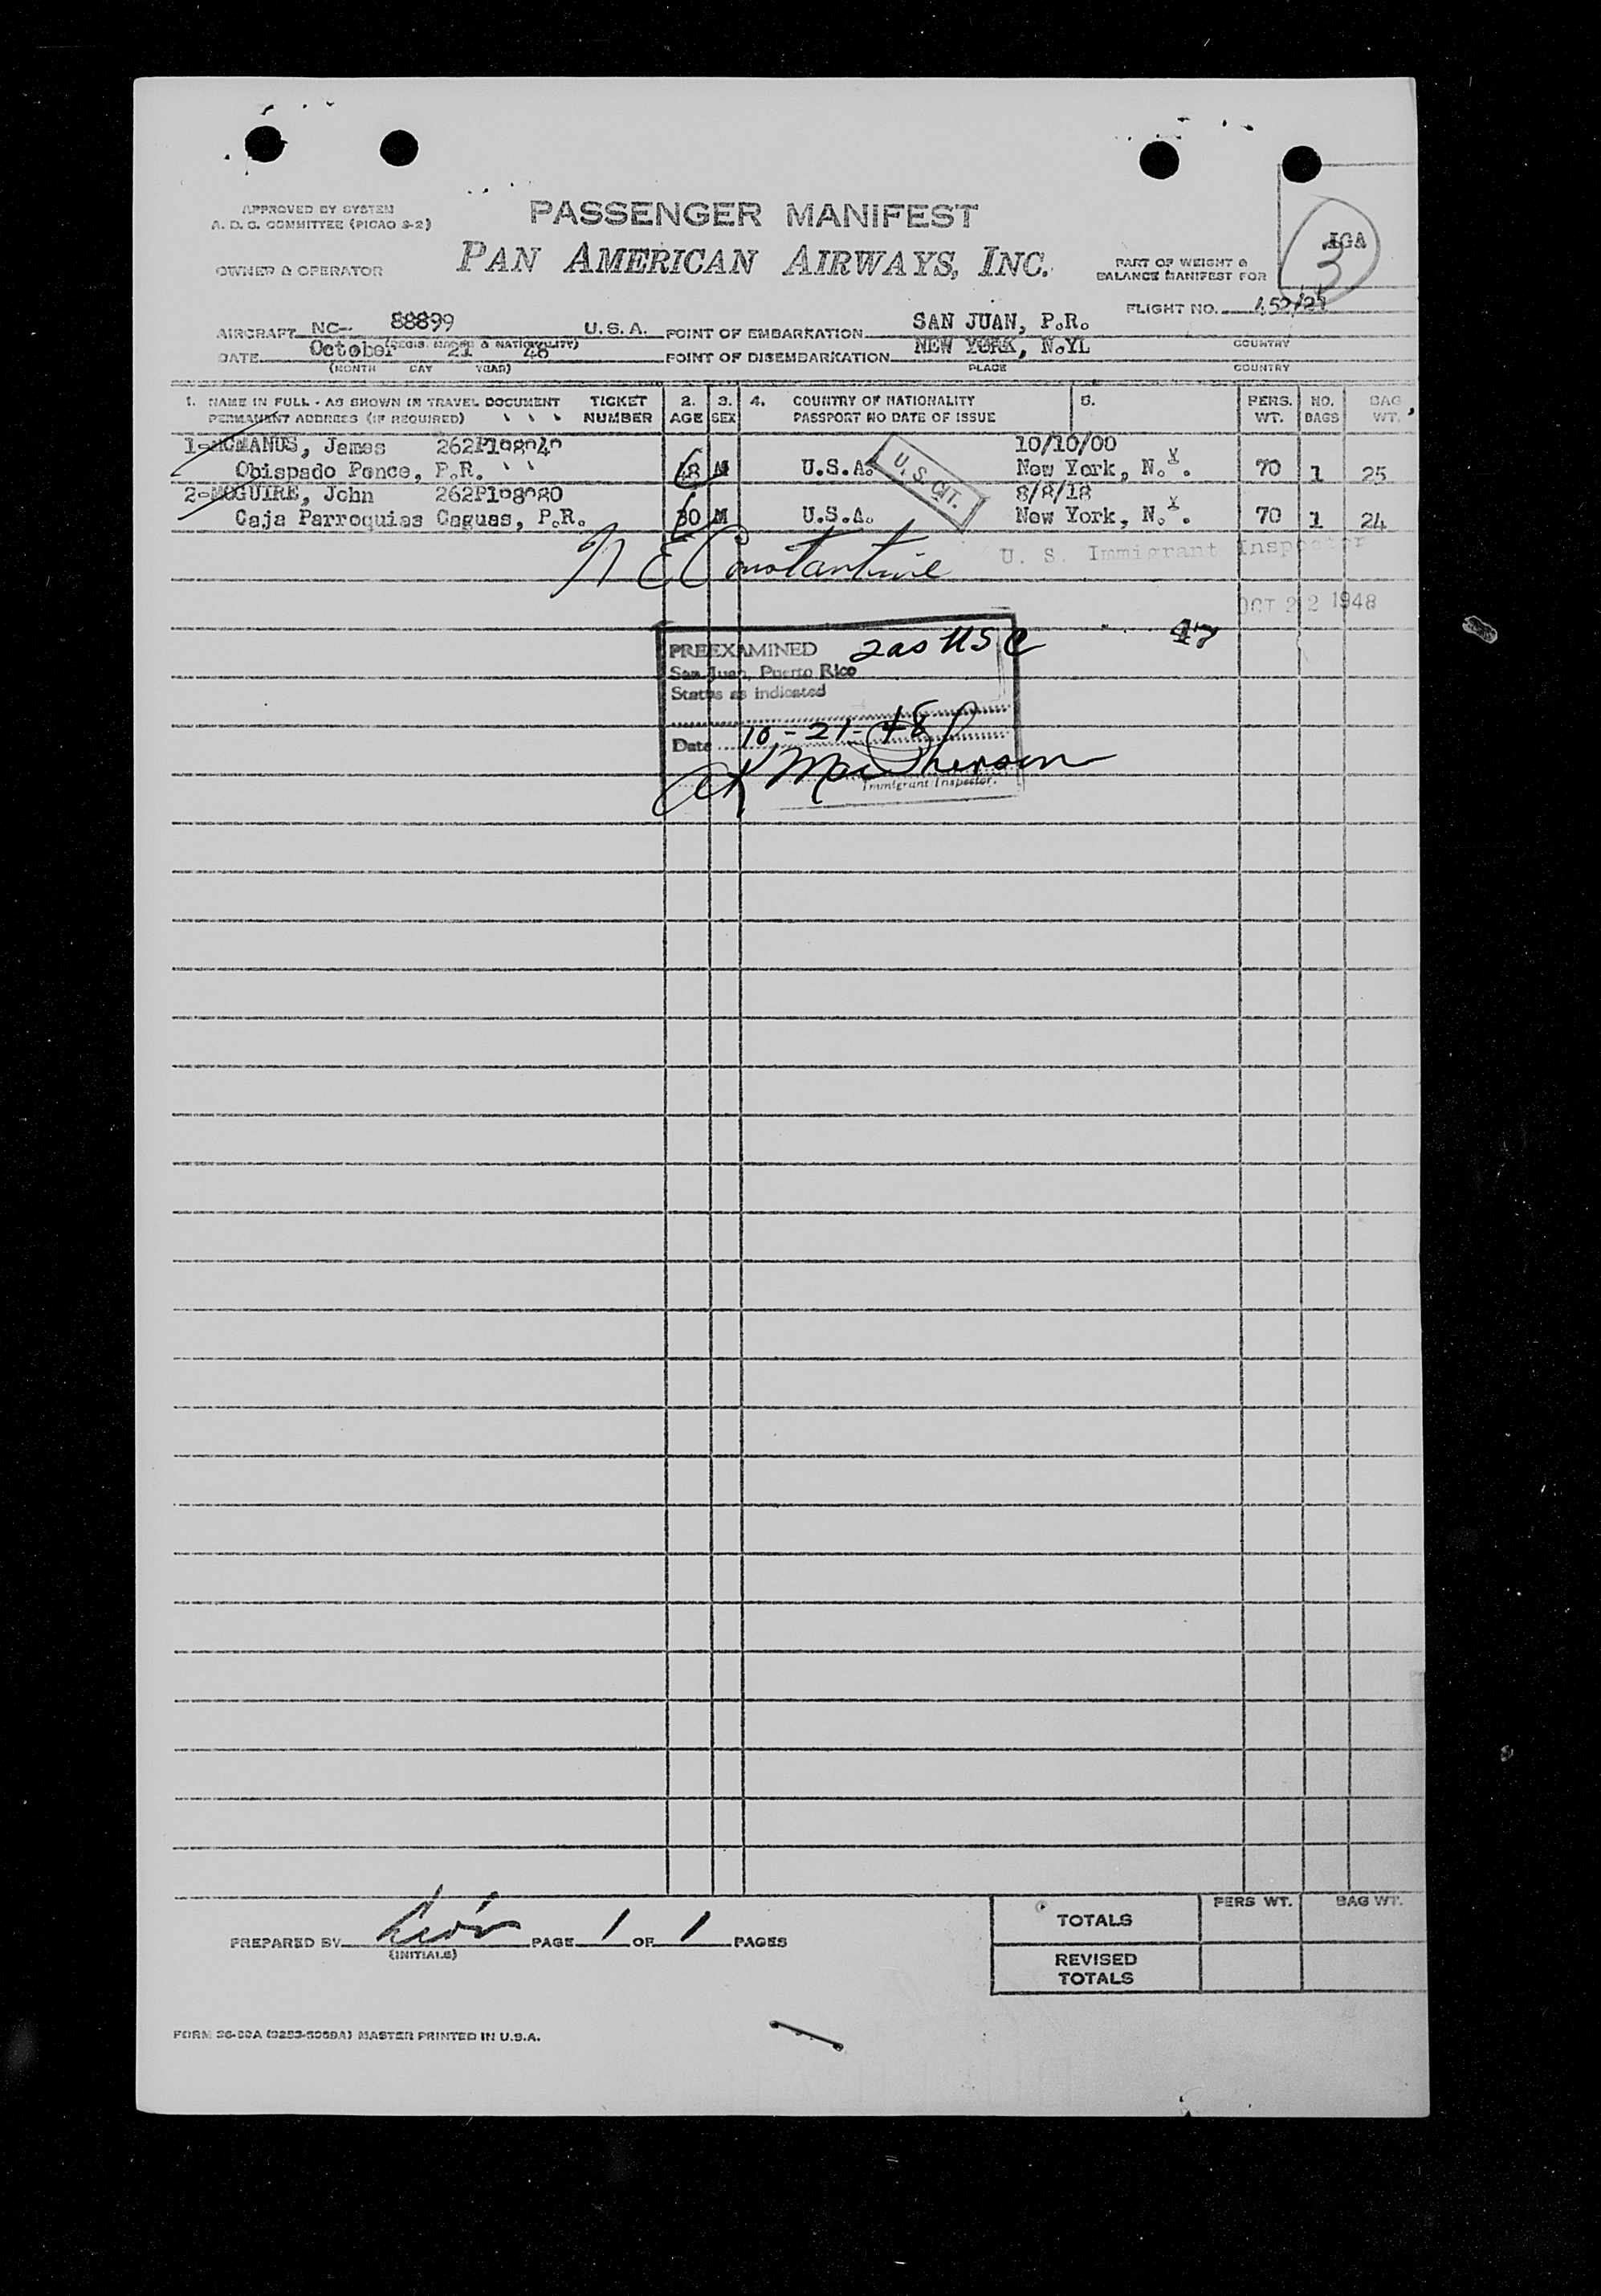 APPROVED BY SYSTEM
A. D. C. COMMITTEE (PICAO S-2)
PASSENGER MANIFEST
OWNER & OPERATOR
PAN AMERICAN AIRWAYS, INC.
PART OF WEIGHT &
BALANCE MANIFEST FOR
JGA
3
FLIGHT NO. 452/21
AIRCRAFT NC- 88899 U. S. A. POINT OF EMBARKATION SAN JUAN, P.R.
(REGIS. MARKS & NATIONALITY) COUNTRY
DATE October 21 48 POINT OF DISEMBARKATION NEW YORK, N.YL
(MONTH DAY YEAR) PLACE COUNTRY
1. NAME IN FULL - AS SHOWN IN TRAVEL DOCUMENT TICKET 2. 3. 4. COUNTRY OF NATIONALITY 5. PERS. NO. BAG
PERMANENT ADDRESS (IF REQUIRED) NUMBER AGE SEX PASSPORT NO DATE OF ISSUE WT. BAGS WT.
1-MCMANUS, James 262P108040 10/10/00
Obispado Ponce, P.R. 48 M U.S.A. New York, N.Y. 70 1 25
U. S. CIT.
2-MCGUIRE, John 262P108080 8/8/18
Caja Parroquias Caguas, P.R. 30 M U.S.A. New York, N.Y. 70 1 24
N E Constantine U. S. Immigrant Inspector
OCT 22 1948
PREEXAMINED 2 as USC
San Juan, Puerto Rico
Status as indicated
Date 10-21-48
A K MacPherson
Immigrant Inspector.
PREPARED BY León PAGE 1 OF 1 PAGES
(INITIALS)
PERS WT. BAG WT.
TOTALS
REVISED
TOTALS
FORM 36-50A (9253-5069A) MASTER PRINTED IN U.S.A.